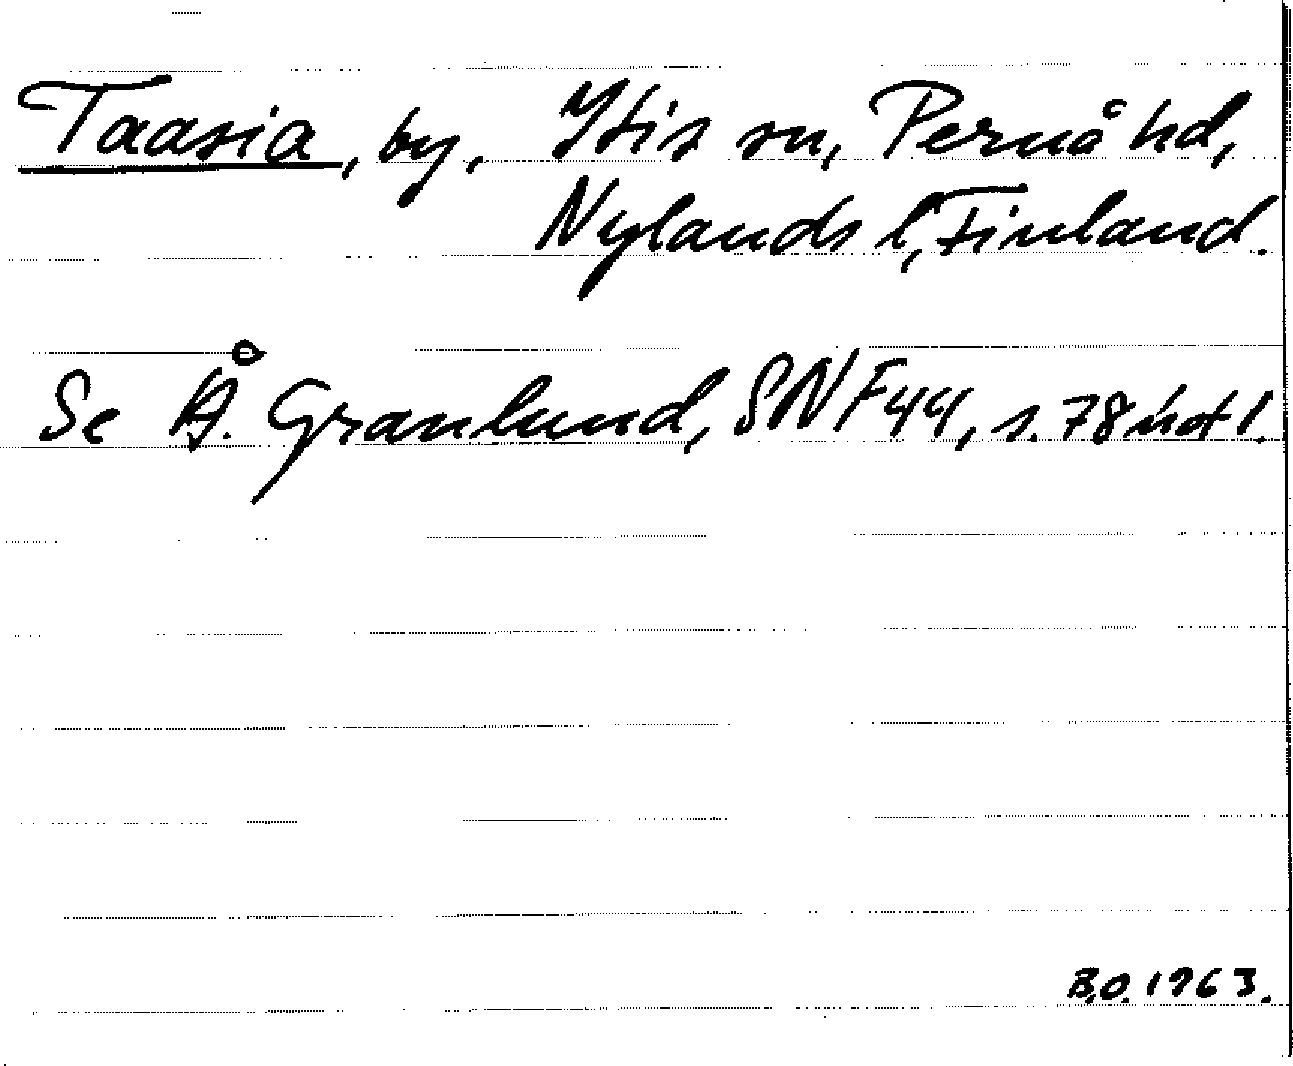 Taasia, by, Itis sn, Pernå hd,
Nylands l, Finland.
Se Å. Granlund, SNF 44, s. 78 not 1.
B.O. 1963.